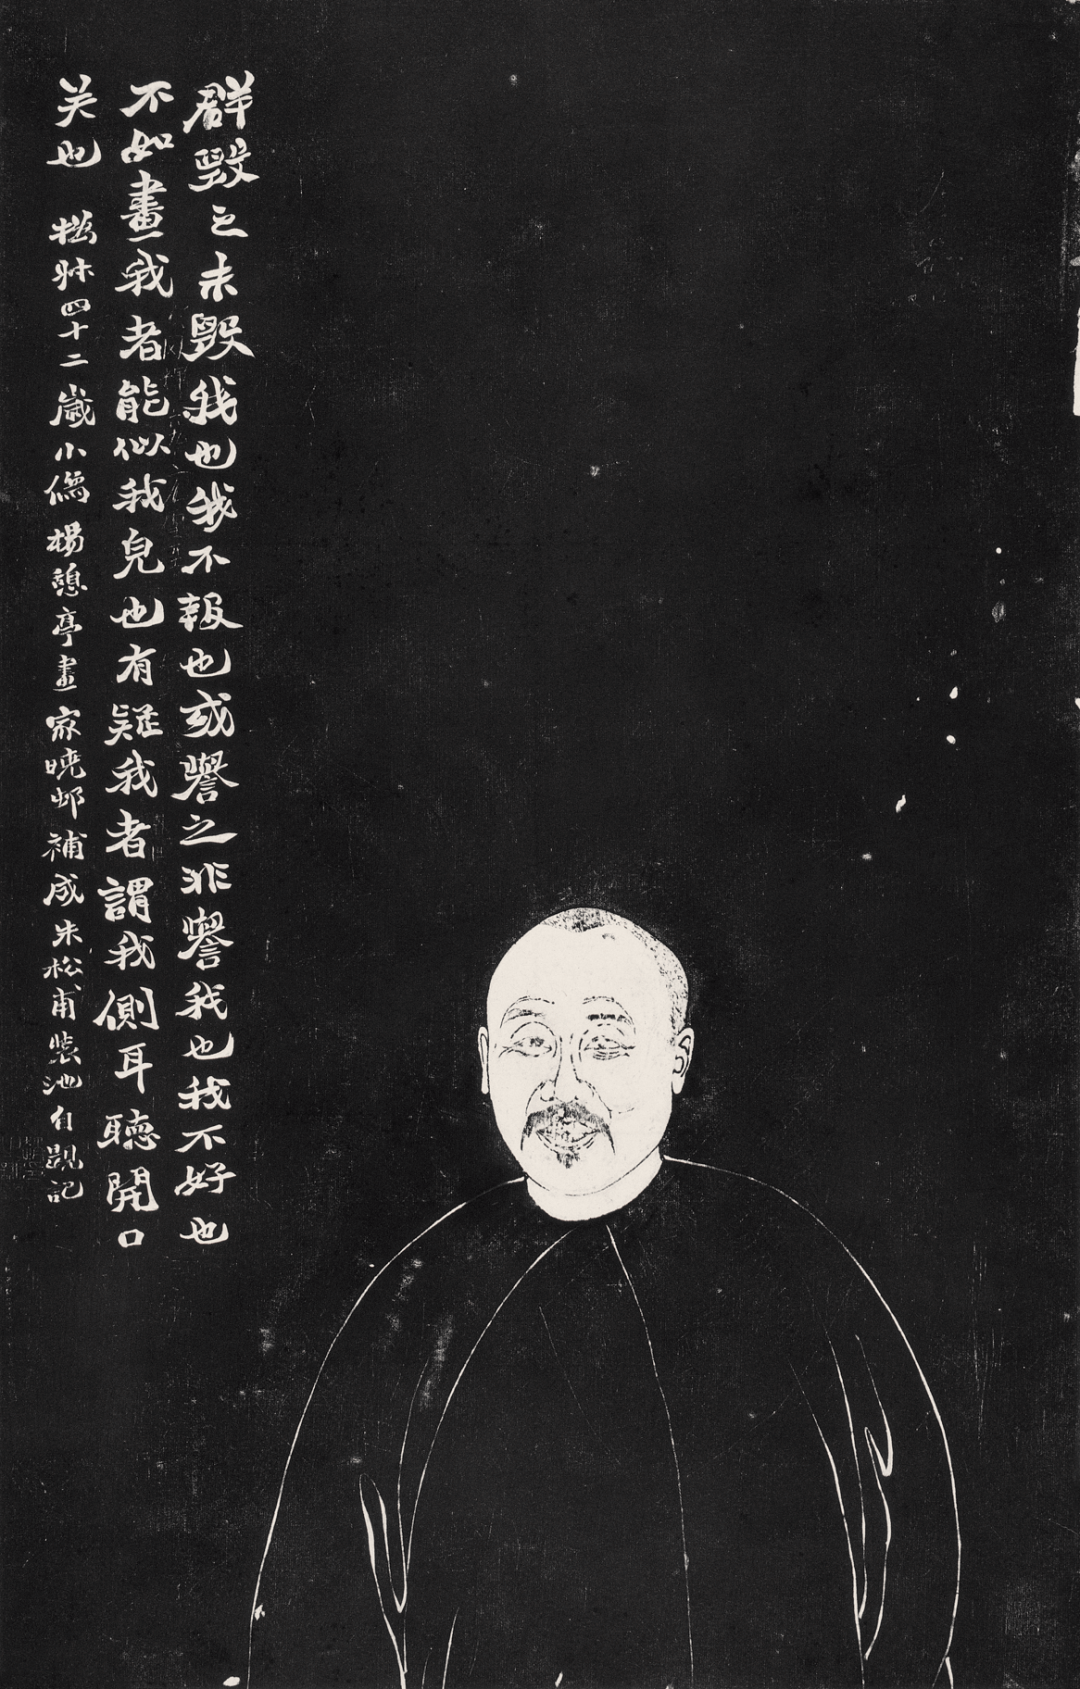 群毀之未毀我也我不報也或譽之非譽我也我不好也
不如畫我者能似我皃也有疑我者謂我側耳聽開口
关也 拙叔四十二歲小像楊憩亭畫家曉邨補成朱松甫裝池自題記